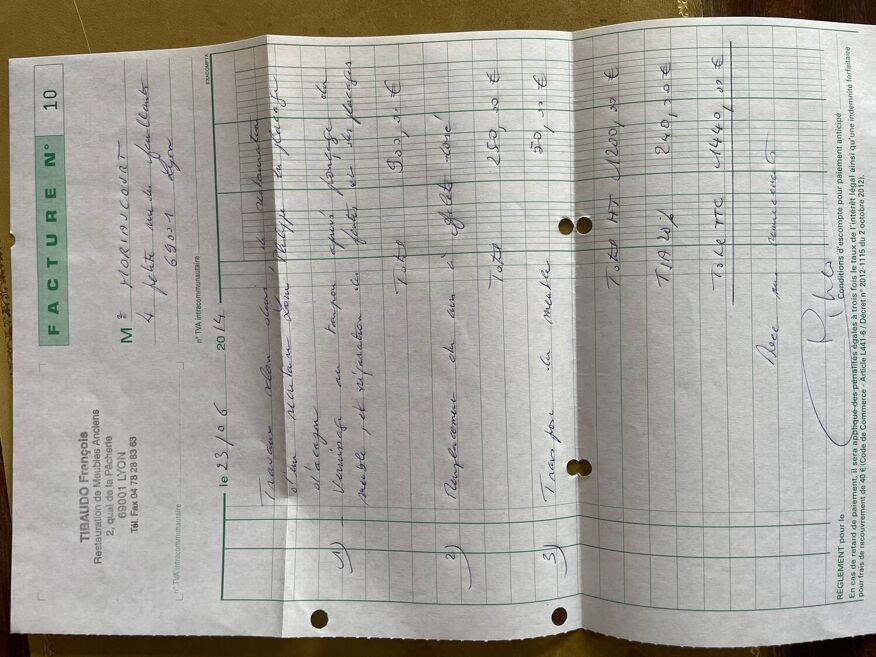 FACTURE N° 10
TIBAUDO François
Restauration de Meubles Anciens
2, quai de la Pêcherie
69001 LYON
Tél. Fax 04 78 28 83 63
Me MORIANCOURT
4 petite rue des feuillants
69001 Lyon
n° TVA intracommunautaire
n° TVA intracommunautaire
le 23/06 2014
EXACOMPTA
Travaux selon devis, de restauration
d'un secrétaire Louis Philippe en placage
d'acajou
1) - Vernissage au tampon après ponçage du
meuble, et réparation des fentes et des placages
Total 900,00 €
2) Remplacement du cuir à filets doré
Total 250,00 €
3) Transport du meuble 50,00 €
Total HT 1200,00 €
TVA 20% 240,00 €
Total TTC 1440,00 €
Avec mes remerciements
RÈGLEMENT pour le
Conditions d'escompte pour paiement anticipé
En cas de retard de paiement, il sera appliqué des pénalités égales à trois fois le taux de l'intérêt légal ainsi qu'une indemnité forfaitaire
pour frais de recouvrement de 40 € (Code de Commerce - Article L441-6 / Décret n° 2012-1115 du 2 octobre 2012).